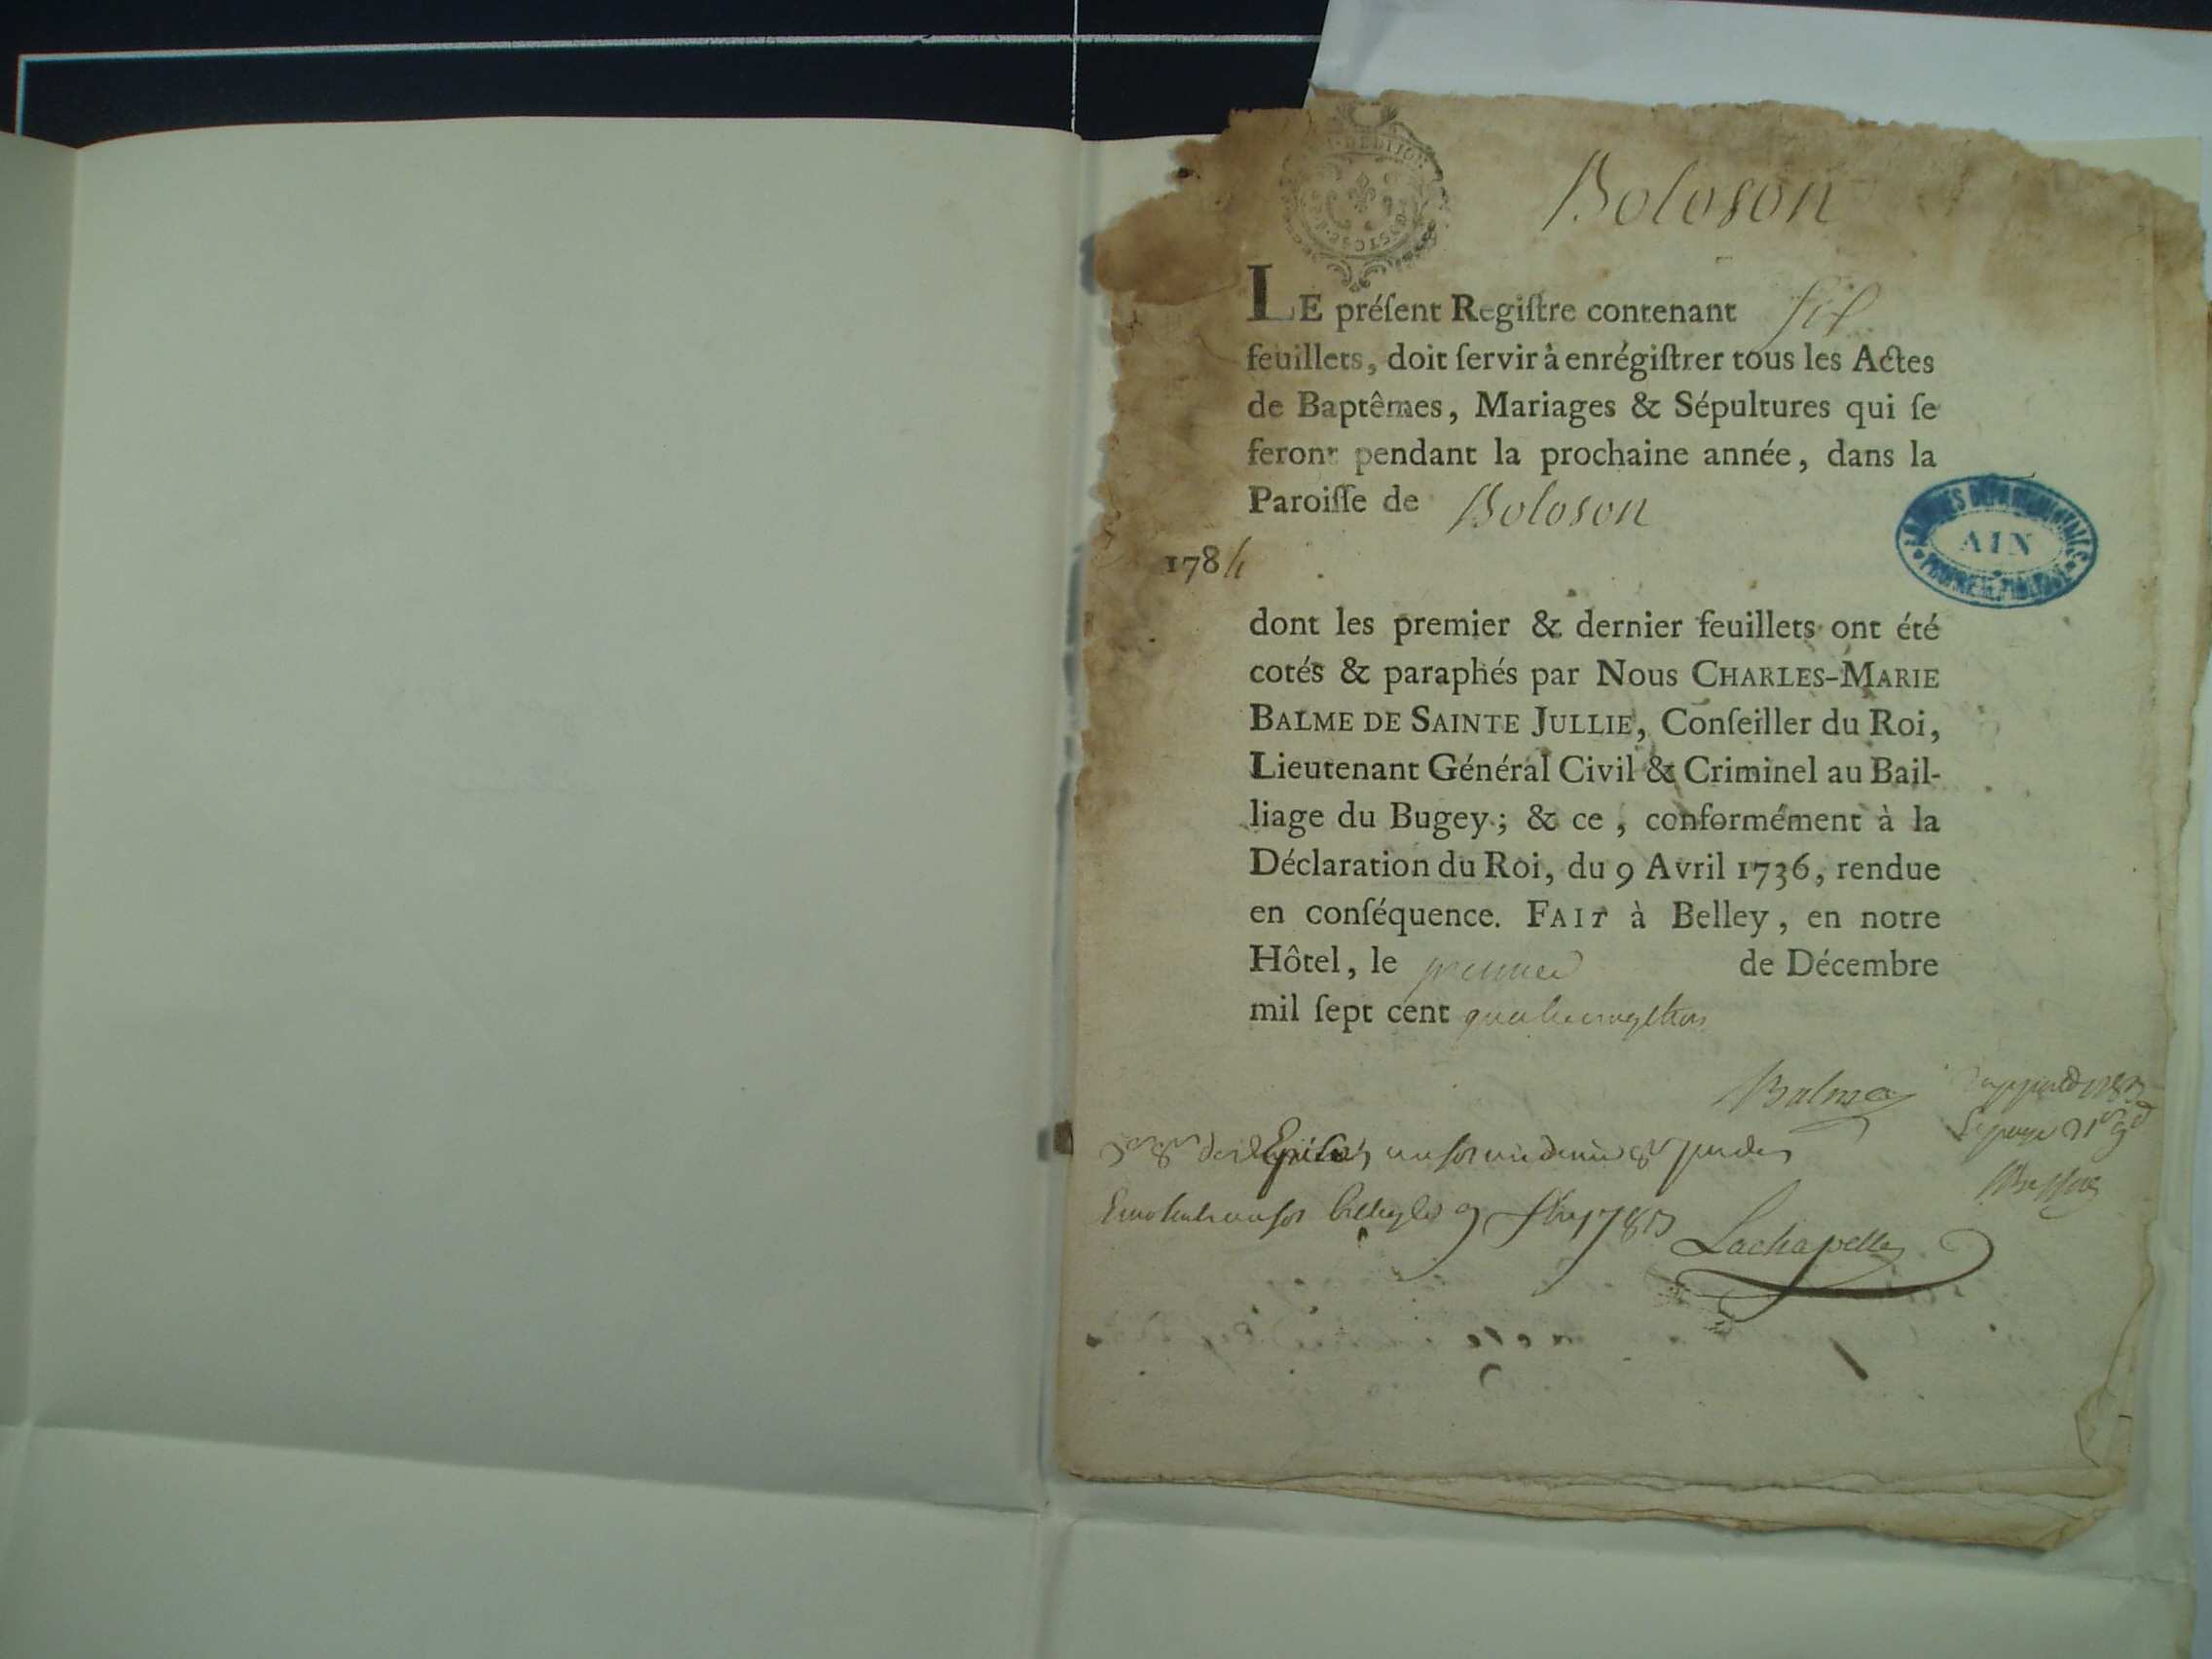 DE DIJON
Boloson
LE préſent Regiſtre contenant ſix
feuillets, doit ſervir à enrégiſtrer tous les Actes
de Baptêmes, Mariages & Sépultures qui ſe
feront pendant la prochaine année, dans la
Paroiſſe de Boloson
1784
ARCHIVES DÉPARTEMENTALES
AIN
dont les premier & dernier feuillets ont été
cotés & paraphés par Nous CHARLES-MARIE
BALME DE SAINTE JULLIE, Conſeiller du Roi,
Lieutenant Général Civil & Criminel au Bail-
liage du Bugey; & ce, conformément à la
Déclaration du Roi, du 9 Avril 1736, rendue
en conſéquence. FAIT à Belley, en notre
Hôtel, le premier de Décembre
mil ſept cent quatre vingt trois
Balme
Lachapelle